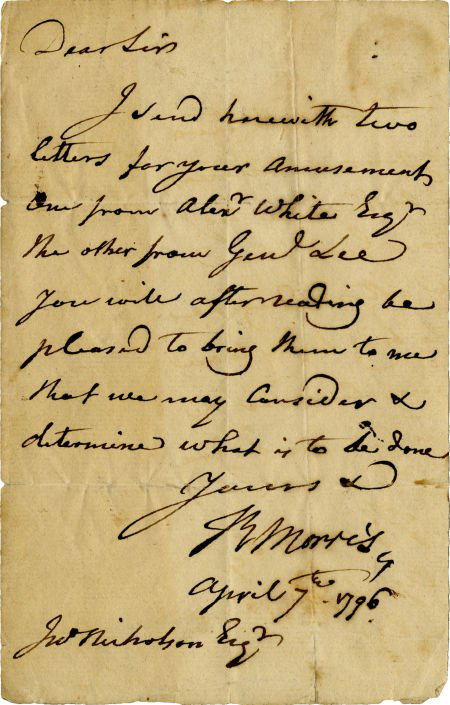 Dear Sir
I send herewith two
letters for your amusement
one from Alexr. White Esqr
the other from Genl. Lee
You will after reading be
pleased to bring them to me
that we may Consider &
determine what is to be done
Yours &
R Morris
April 7th. 1796
Jno Nicholson Esqr